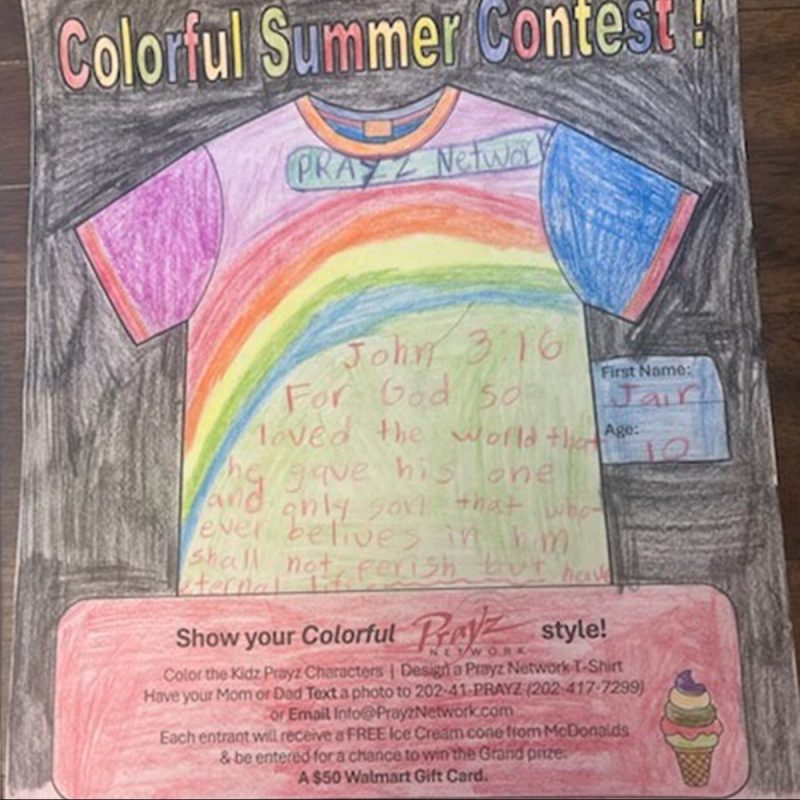 Colorful Summer Contest !
PRAYZ Network
John 3:16
For God so
loved the world that
he gave his one
and only son that who-
ever belives in him
shall not perish but have
eternal life
First Name:
Jair
Age:
10
Show your Colorful Prayz NETWORK style!
Color the Kidz Prayz Characters | Design a Prayz Network T-Shirt
Have your Mom or Dad Text a photo to 202-41-PRAYZ (202-417-7299)
or Email Info@PrayzNetwork.com
Each entrant will receive a FREE Ice Cream cone from McDonalds
& be entered for a chance to win the Grand prize:
A $50 Walmart Gift Card.